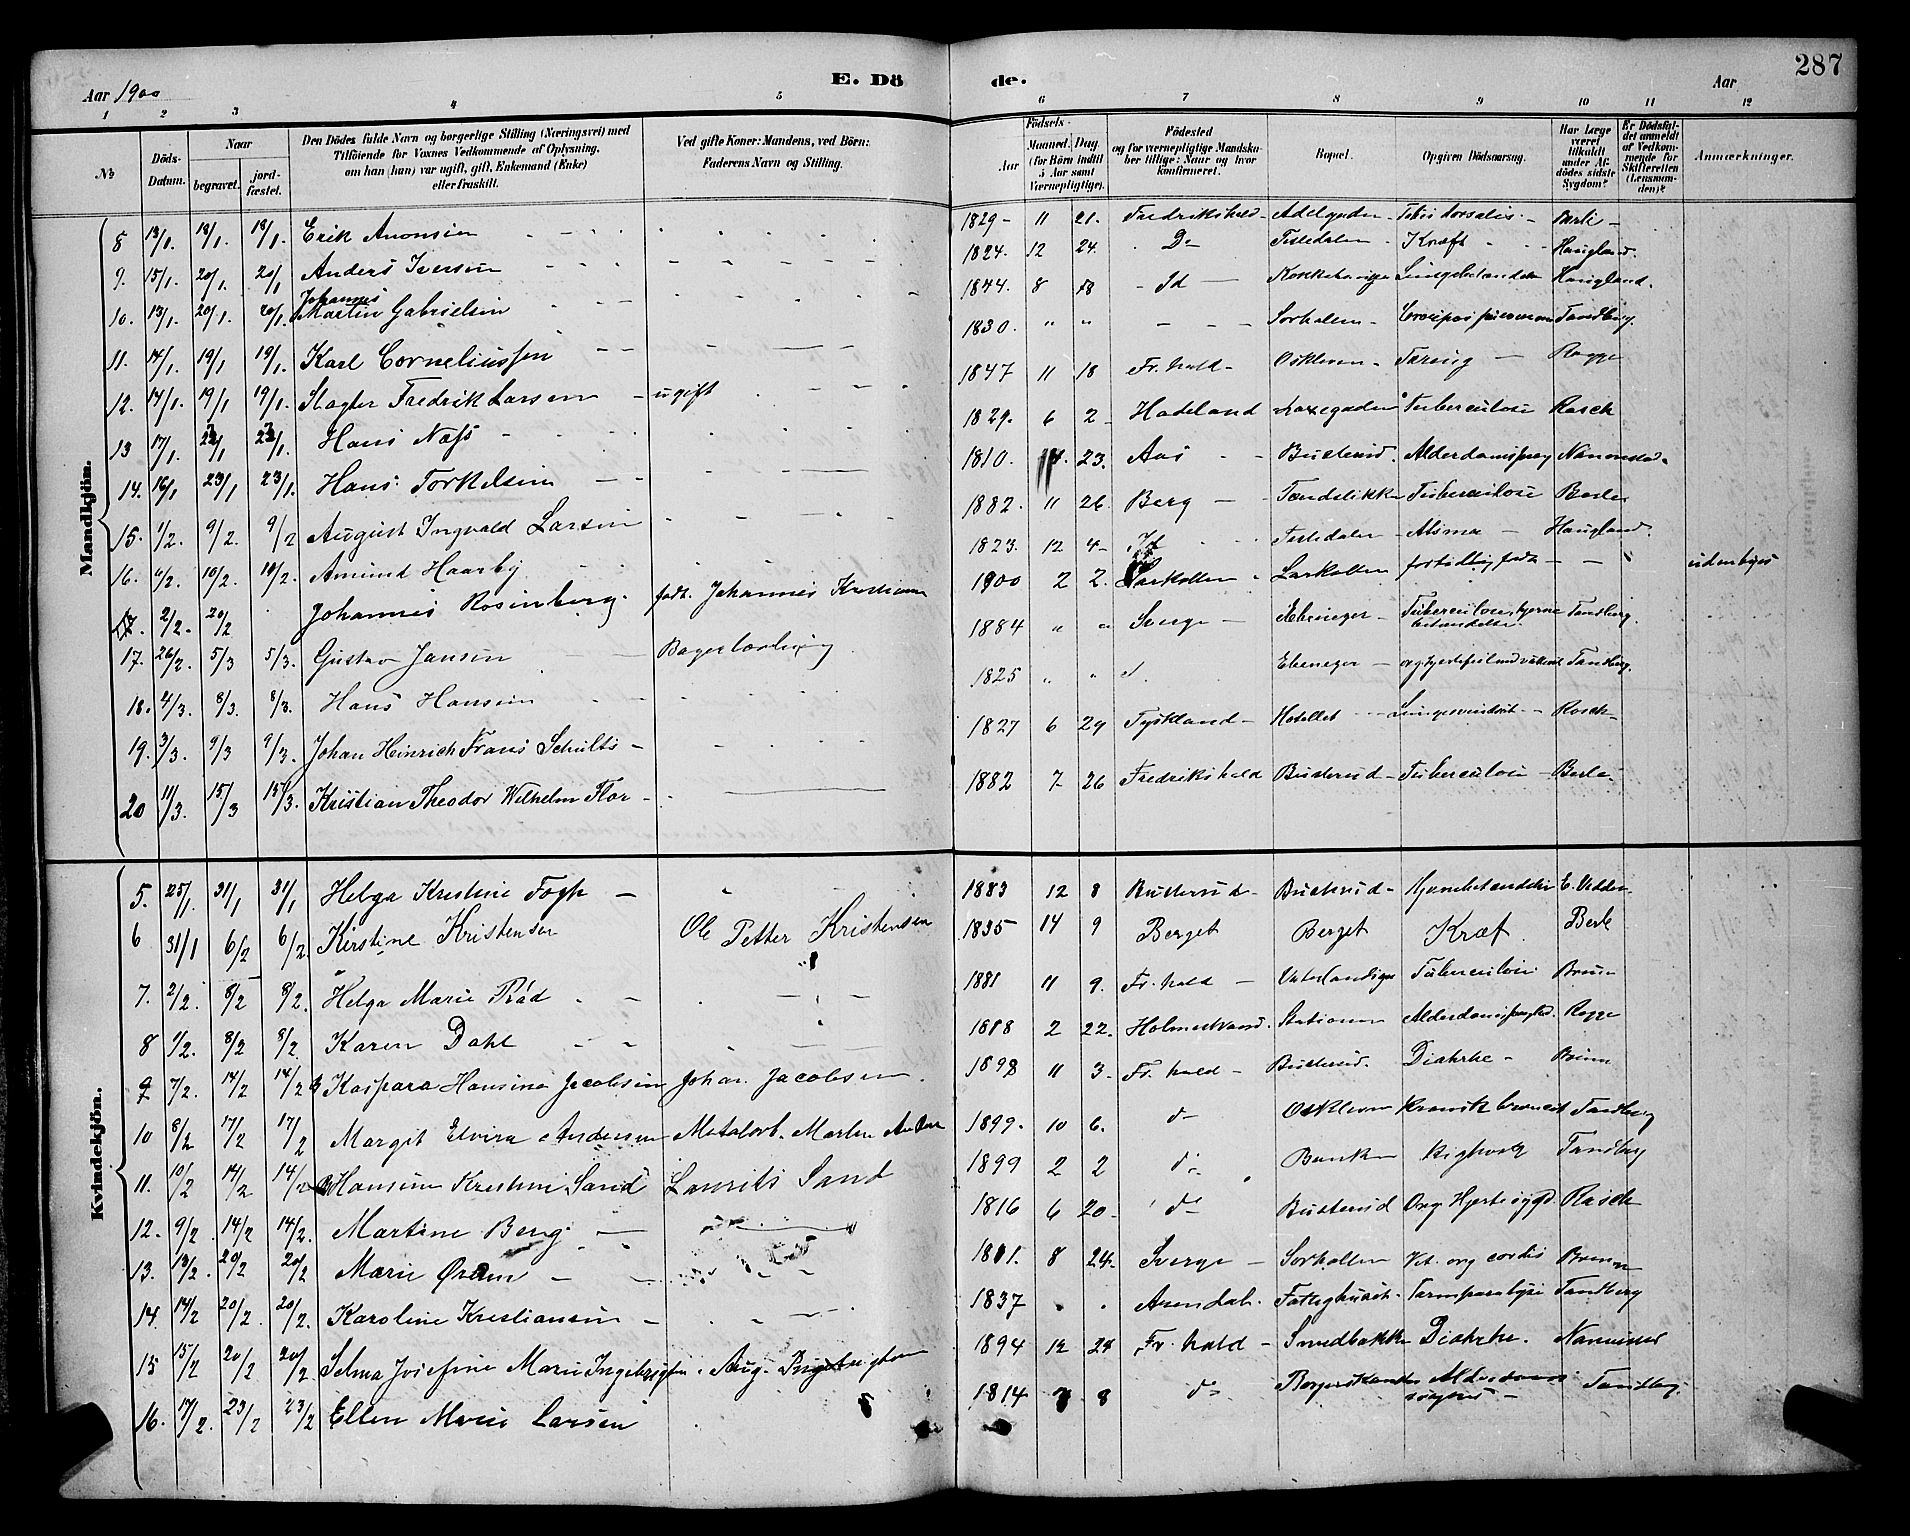 287
Aar 1900
E. Dö de.
Aar
1 2 3 4 5 6 7 8 9 10 11 12
No
Döds-Datum.
Naar
begravet.
jord-fæstet.
Den Dödes fulde Navn og borgerlige Stilling (Næringsvei) med
Tilföiende for Voxnes Vedkommende af Oplysning,
om han (hun) var ugift, gift, Enkemand (Enke)
eller fraskilt.
Ved gifte Koner: Mandens, ved Börn:
Faderens Navn og Stilling.
Födsels-
Aar
Maaned. Dag.
(for Börn indtil
5 Aar samt
Værnepligtige).
Födested
og for værnepligtige Mandska-
ber tillige: Naar og hvor
konfirmeret.
Bopæl.
Opgiven Dödsaarsag.
Har Læge
været
tilkaldt
under Af-
dödes sidste
Sygdom?
Er Dödsfal-
det anmeldt
af Vedkom-
mende for
Skifteretten
(Lensman-
den)?
Anmærkninger.
Mandkjön.
8 13/1. 18/1. 18/1. Erik Aronsen 1829 - 11 21. Fredrikshald - Adelgaden - Tabes dorsalis - Berle -
9. 15/1. 20/1. 20/1 Anders Iversen 1824. 12 24. Do Tistedalen - Kræft Haugland.
10. 13/1. 20/1. 20/1. Johannes Martin Gabrielsen 1844. 8 18 - Id - Haugland.
11. 14/1. 19/1 19/1. Karl Corneliussen 1830. " " Sorhalen - Tandberg.
12. 14/1. 19/1 19/1. Slagter Fredrik Larsen - ugift 1847 11 18 Fr. hald - Oskleven - Tæring - Rogge
13 17/1. 23/1 23/1. Hans Næss 1829. 6 2 Hadeland Tuberculose Rasch
14. 16/1 23/1 23/1. Hans Torkelsen 1810. 23. Aas Busterud.
15. 1/2. 9/2. 9/2 August Ingvald Larsen 1882. 11 26. Berg - Tuberculose Berle
16. 6/2. 10/2. 10/2. Amund Haarby 1823. 12 4 - Id Tistedalen - Astma - Haugland.
17. 2/2. 20/2 Johannes Rosenberg. fadr. Johannes Kristiansen 1900 2 2. Larkollen Larkollen fortidlig født - - udenbyes
17. 26/2. 5/3 5/3. Gustav Jansen Bagerlærling 1884 " " Sverge - Ebeneger - Tuberculose, hjerne betændelse. Tandberg.
18. 4/3. 8/3. 8/3. Hans Hansen 1825 " " d. Ebeneger - Tandberg.
19. 3/3. 9/3 9/3. Johan Hinrich Frans Schults - 1827 6 29 Tyskland - Hotellet - Rasch -
20 11/3. 15/3 15/3. Kristian Theodor Wilhelm Flor - 1882 7 26 Fredrikshald Busterud - Tuberculose - Berle -
Kvindekjön.
5. 25/1. 31/1 31/1 Helga Kristine Fogh - 1883 12 8 Busterud - Busterud - Hjernebetændelse
6 31/1 6/2 6/2 Kirstine Kristensen Ole Petter Kristensen 1835 14 9 Berget Berget Kræf. Berle
7. 2/2. 8/2 8/2. Helga Marie Rød 1881 11 9. Fr. hald - Tuberculose Bruun
8 1/2. 8/2 8/2. Karen Dahl 1818 2 22. Holmestrand. Stationen Rogge
9 7/2. 14/2 14/2 Kaspara Hansine Jacobsen Johan Jacobsen. 1898 11 3. Fr. hald - Busterud. Diahrhe - Bruun
10 8/2 17/2 17/2 Margit Elvira Andersen Metalarb. Martin Anders 1899. 10 6. do Oskleven Kronisk Tandberg
11. 10/2 14/2 14/2 Hansine Kristine Sand Laurits Sand 1899 2 2 do Banken Kighoste Tandberg
12. 9/2. 14/2 14/2. Martine Berg - 1816 6 20 - do Busterud Org. Hjertesygd. Rasch
13. 13/2. 20/2 20/2 Marie 8 24. Sverge - Sorhalen Vit. org cordis Bruun
14. 14/2 20/2. 20/2. Karoline Kristiansen - 1837 Arendal. Fattighuset - Tarmparalyse Tandberg
15 15/2 20/2 20/2 Selma Josefine Marie Ingebrigtsen. Aug. Ingebrigtsen 1894 12 28 Fr. hald - Smedbakke Diahrhe.
16. 17/2. 23/2 23/2 Ellen Marie Larsen 1814 7. 8 do Alderdoms svaghed - Tandberg.